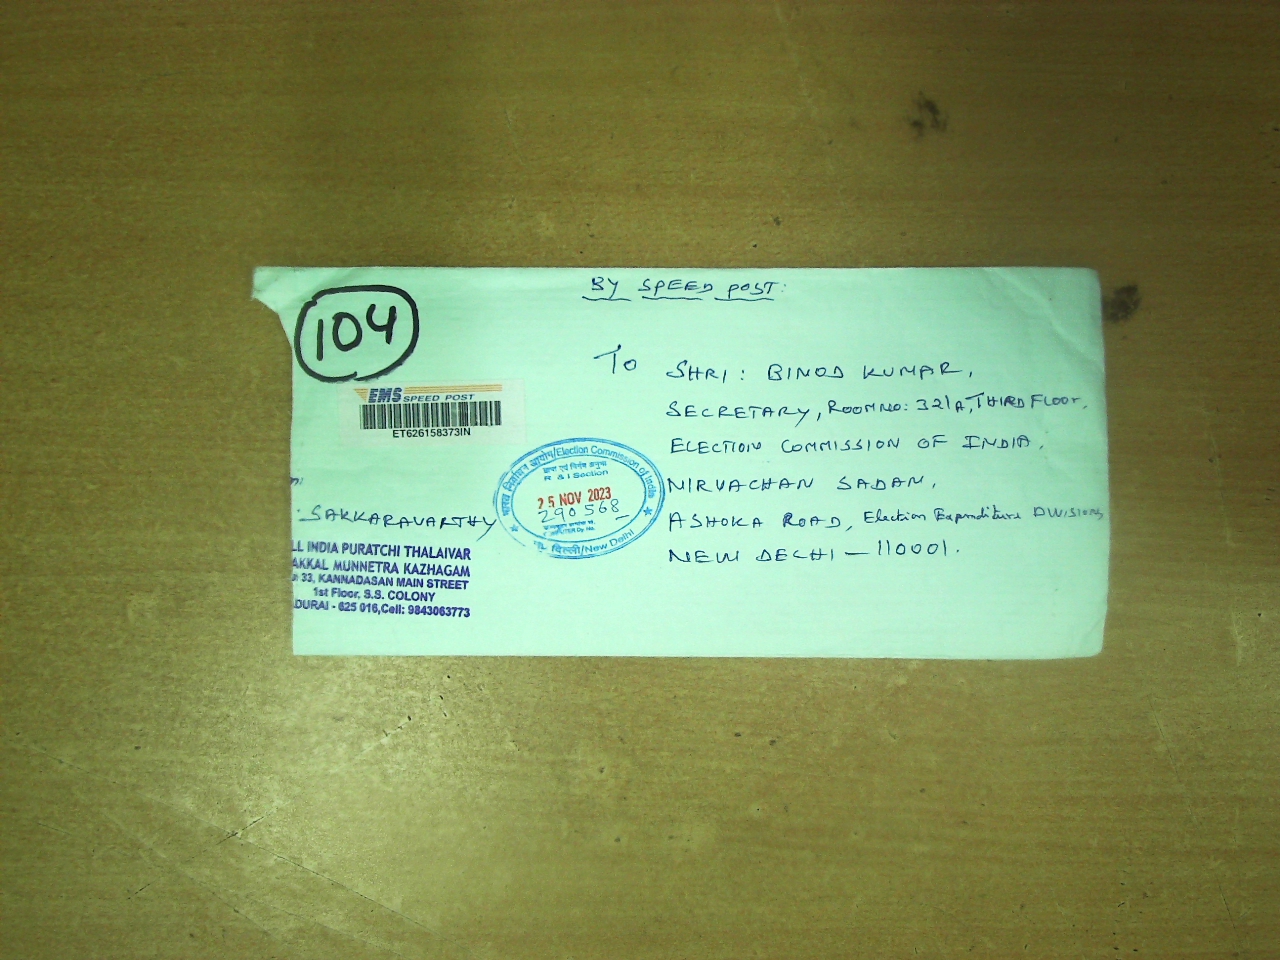 BY SPEED POST:
104
To
SHRI: BINOD KUMAR,
SECRETARY, ROOM NO: 321A, THIRD FLOOR,
ELECTION COMMISSION OF INDIA,
NIRVACHAN SADAN,
ASHOKA ROAD, Election Expenditure DIVISION,
NEW DECHI - 110001.
EMS SPEED POST
ET626158373IN
भारत निर्वाचन आयोग/Election Commission of India
R & I Section
25 NOV 2023
290568
नई दिल्ली/New Delhi
SAKKARAVARTHY
LL INDIA PURATCHI THALAIVAR
AKKAL MUNNETRA KAZHAGAM
33, KANNADASAN MAIN STREET
1st Floor, S.S. COLONY
DURAI - 625 016,Cell: 9843063773